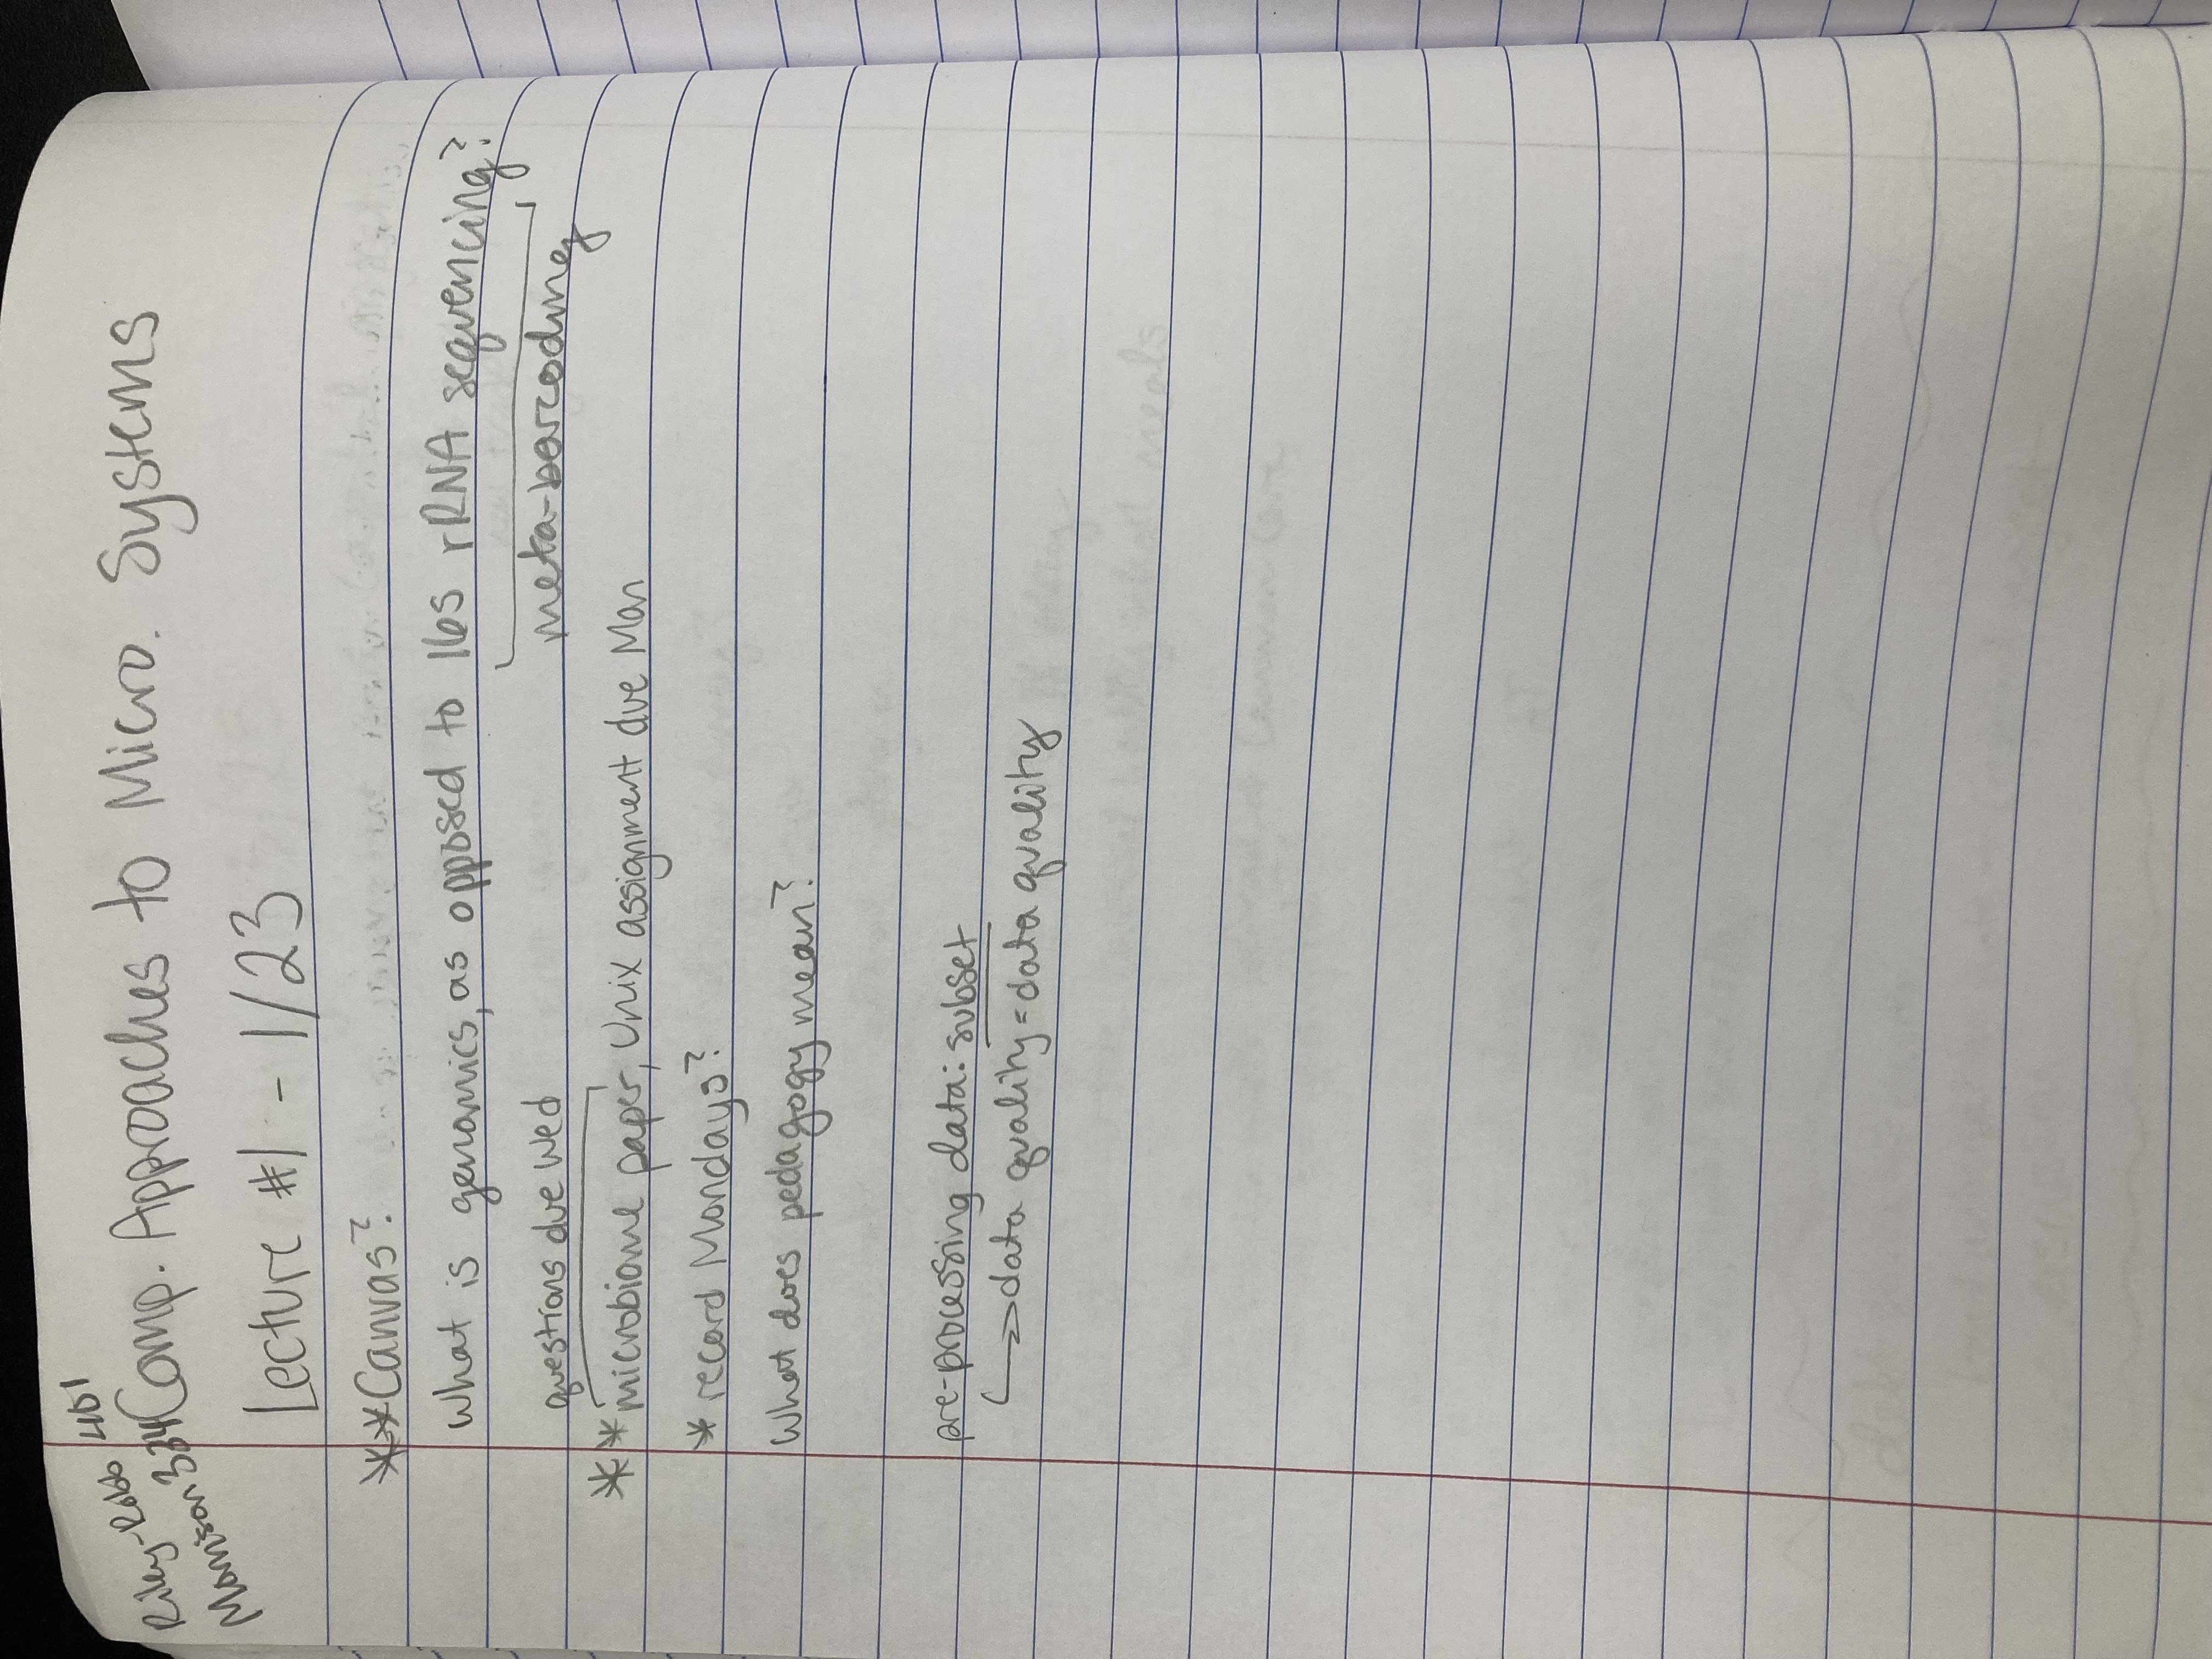 Riley-Robb 401
Morrison 334
Comp. Approaches to Micro. Systems
Lecture #1 - 1/23
**Canvas?
What is genomics, as opposed to 16s rRNA sequencing?
meta-barcoding
questions due Wed
**microbiome paper, Unix assignment due Mon
*record Mondays?
What does pedagogy mean?
pre-processing data: subset
↳data quality = data quality